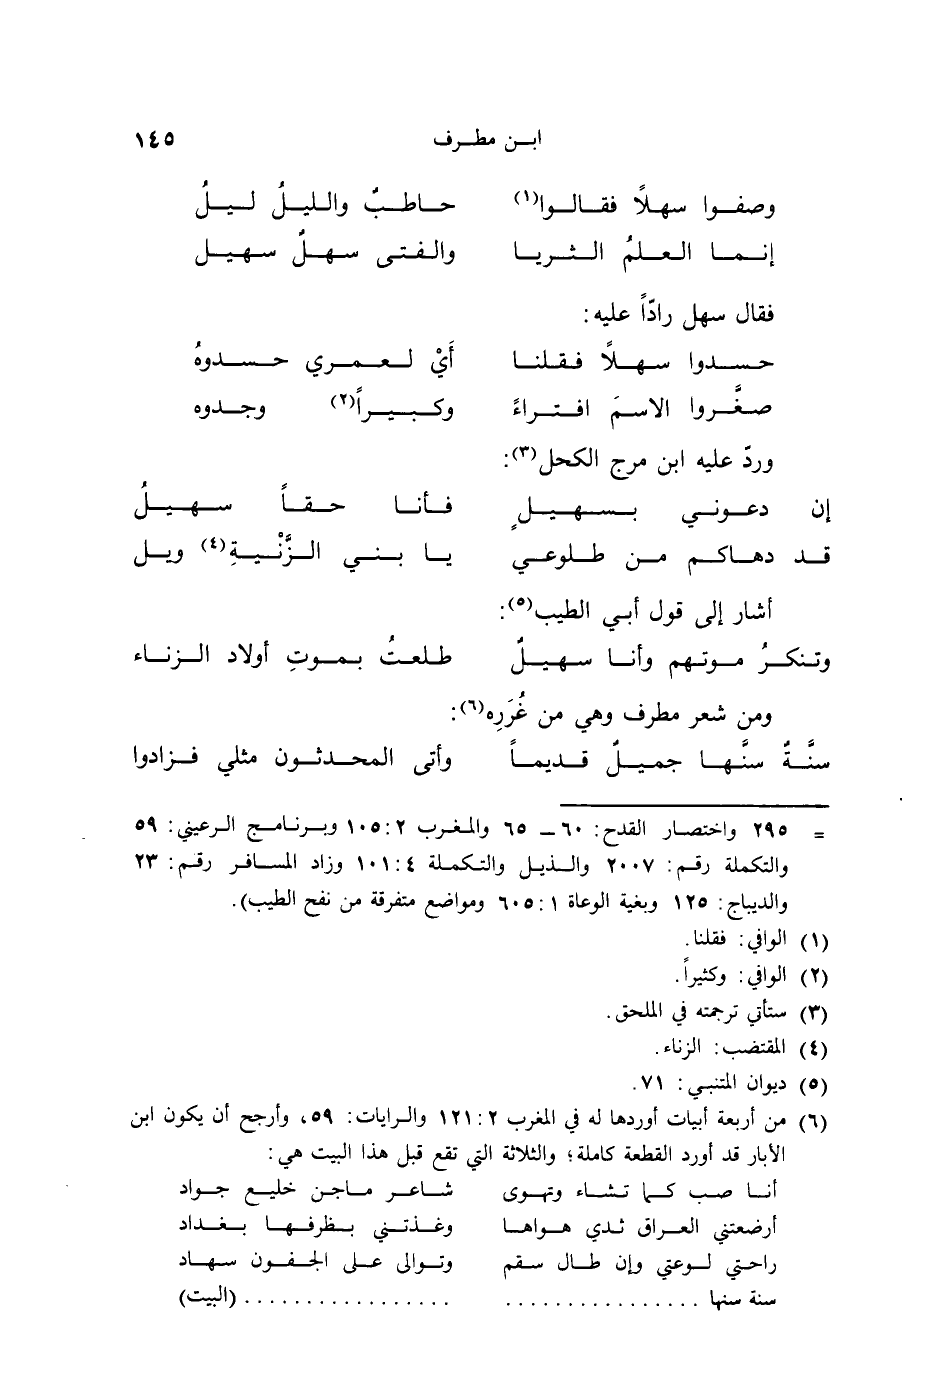 ابن مطرف ١٤٥
وصفوا سهلاً فقالوا(١) حاطبٌ والليلُ ليلُ
إنما العلمُ الثريا والفتى سهلٌ سهيل
فقال سهل رادّاً عليه:
حسدوا سهلاً فقلنا أَيْ لعمري حسدوهُ
صغَّروا الاسمَ افتراءً وكبيراً(٢) وجدوه
وردّ عليه ابن مرج الكحل(٣):
إن دعوني بسهيلٍ فأنا حقاً سهيلُ
قد دهاكم من طلوعي يا بني الزَّنْيةِ(٤) ويل
أشار إلى قول أبي الطيب(٥):
وتنكرُ موتهم وأنا سهيلٌ طلعتُ بموتِ أولاد الزناء
ومن شعر مطرف وهي من غُرَرِه(٦):
سنَّةٌ سنَّها جميلٌ قديماً وأتى المحدثون مثلي فزادوا
= ٢٩٥ واختصار القدح: ٦٠ ــ ٦٥ والمغرب ٢: ١٠٥ وبرنامج الرعيني: ٥٩
والتكملة رقم: ٢٠٠٧ والذيل والتكملة ٤: ١٠١ وزاد المسافر رقم: ٢٣
والديباج: ١٢٥ وبغية الوعاة ١: ٦٠٥ ومواضع متفرقة من نفح الطيب).
(١) الوافي: فقلنا.
(٢) الوافي: وكثيراً.
(٣) ستأتي ترجمته في الملحق.
(٤) المقتضب: الزناء.
(٥) ديوان المتنبي: ٧١.
(٦) من أربعة أبيات أوردها له في المغرب ٢: ١٢١ والرايات: ٥٩، وأرجح أن يكون ابن
الأبار قد أورد القطعة كاملة؛ والثلاثة التي تقع قبل هذا البيت هي:
أنا صب كما تشاء وتهوى شاعر ماجن خليع جواد
أرضعتني العراق ثدي هواها وغذتني بظرفها بغداد
راحتي لوعتي وإن طال سقم وتوالى على الجفون سهاد
سنة سنها ................ ................ (البيت)